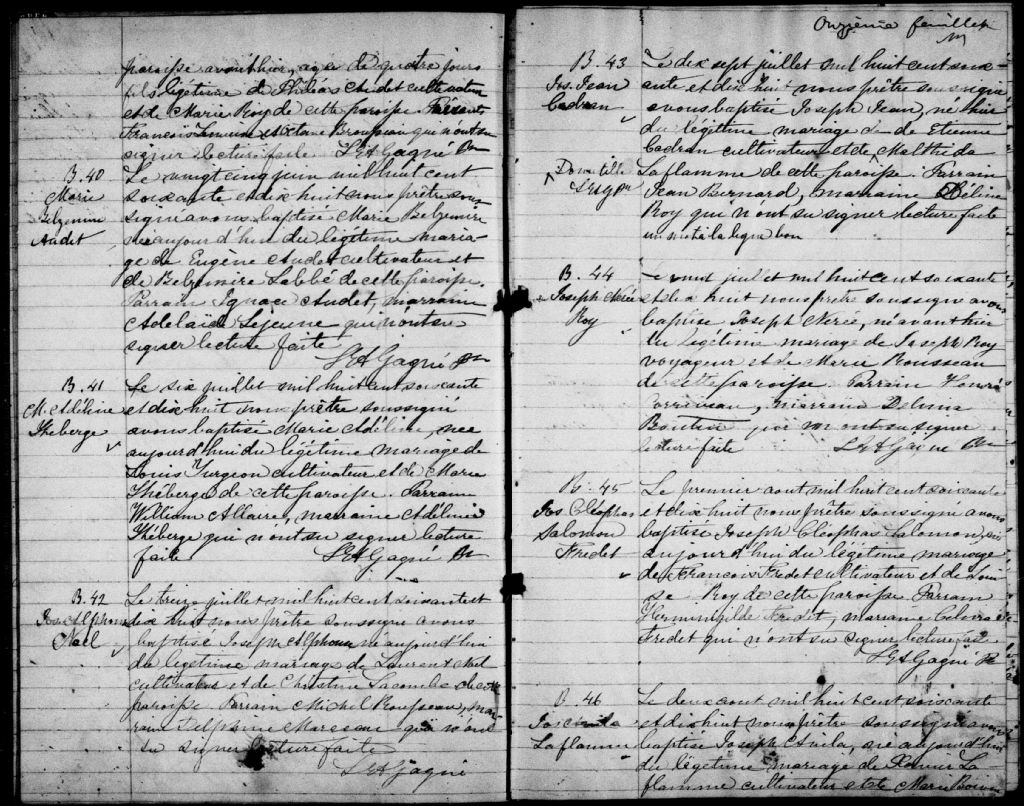 paroisse avant hier, agé de quatre jours
fils légitime de Audet cultivateur
et de Marie Roy de cette paroisse. Parrain
François et Octave Brousseau qui n'ont su
signer lecture faite LEA Gagné Ptr
B. 40
Marie
Belzemire
Audet
Le vingt cinq juin mil huit cent
soixante et dix huit nous prêtre sous-
signé avons baptisé Marie Belzemire
née aujourd'hui du légitime maria-
ge de Eugène Audet cultivateur et
de Belzemire Labbé de cette paroisse.
Parrain Ignace Audet, marraine
Adelaïde Lejeune qui n'ont su
signer lecture faite
LEA Gagné Ptr
B. 41
M. Adéline
Théberge
Le six juillet mil huit cent soixante
et dix huit nous prêtre soussigné
avons baptisé Marie Adéline, née
aujourd'hui du légitime mariage de
Louis Turgeon cultivateur et de Marie
Théberge de cette paroisse. Parrain
William Allaire, marraine Adéline
Théberge qui n'ont su signer lecture
faite LEA Gagné Ptr
B. 42
Jos. Alphonse
Noel
Le treize juillet mil huit cent soixante et
dix huit nous prêtre soussigné avons
baptisé Joseph Alphonse né aujourd'hui
du légitime mariage de Laurent Noel
cultivateur et de Christine Lacombe de cette
paroisse. Parrain Michel Rousseau, mar-
raine Delphine Marceau qui n'ont
su signer lecture faite
LEA Gagné
Onzième feuillet
B. 43
Jos. Jean
Cadran
Le dix sept juillet mil huit cent soix-
ante et dix huit nous prêtre soussigné
avons baptisé Joseph Jean, né hier
du légitime mariage de de Etienne
Cadran cultivateur et de Malthilda
Domitille
LEAG Ptr
Laflamme de cette paroisse. Parrain
Jean Bernard, marraine Adéline
Roy qui n'ont su signer lecture faite
un mot à la ligne bon
B. 44
Joseph Nérée
Roy
Le vingt juillet mil huit cent soixante
et dix huit nous prêtre soussigné avons
baptisé Joseph Nérée, né avant hier
du légitime mariage de Joseph Roy
voyageur et de Marie Rousseau
de cette paroisse Parrain Honoré
Corriveau, marraine Delvina
Boutin qui n'ont su signer
lecture faite LEA Gagné Ptr
B. 45
Jos Cléophas
Salomon
Fredet
Le premier aout mil huit cent soixante
et dix huit nous prêtre soussigné avons
baptisé Joseph Cléophas Salomon, né
aujourd'hui du légitime mariage
de François Fredet cultivateur et de Loui-
se Roy de cette paroisse Parrain
Herminigilde Fredet, marraine
Fredet qui n'ont su signer lecture faite
LEA Gagné Ptr
B. 46
Laflamme
Le deux aout mil huit cent soixante
et dix huit nous prêtre soussigné avons
baptisé Joseph Avila, né aujourd'hui
du légitime mariage de La-
flamme cultivateur et de Marie Boivin